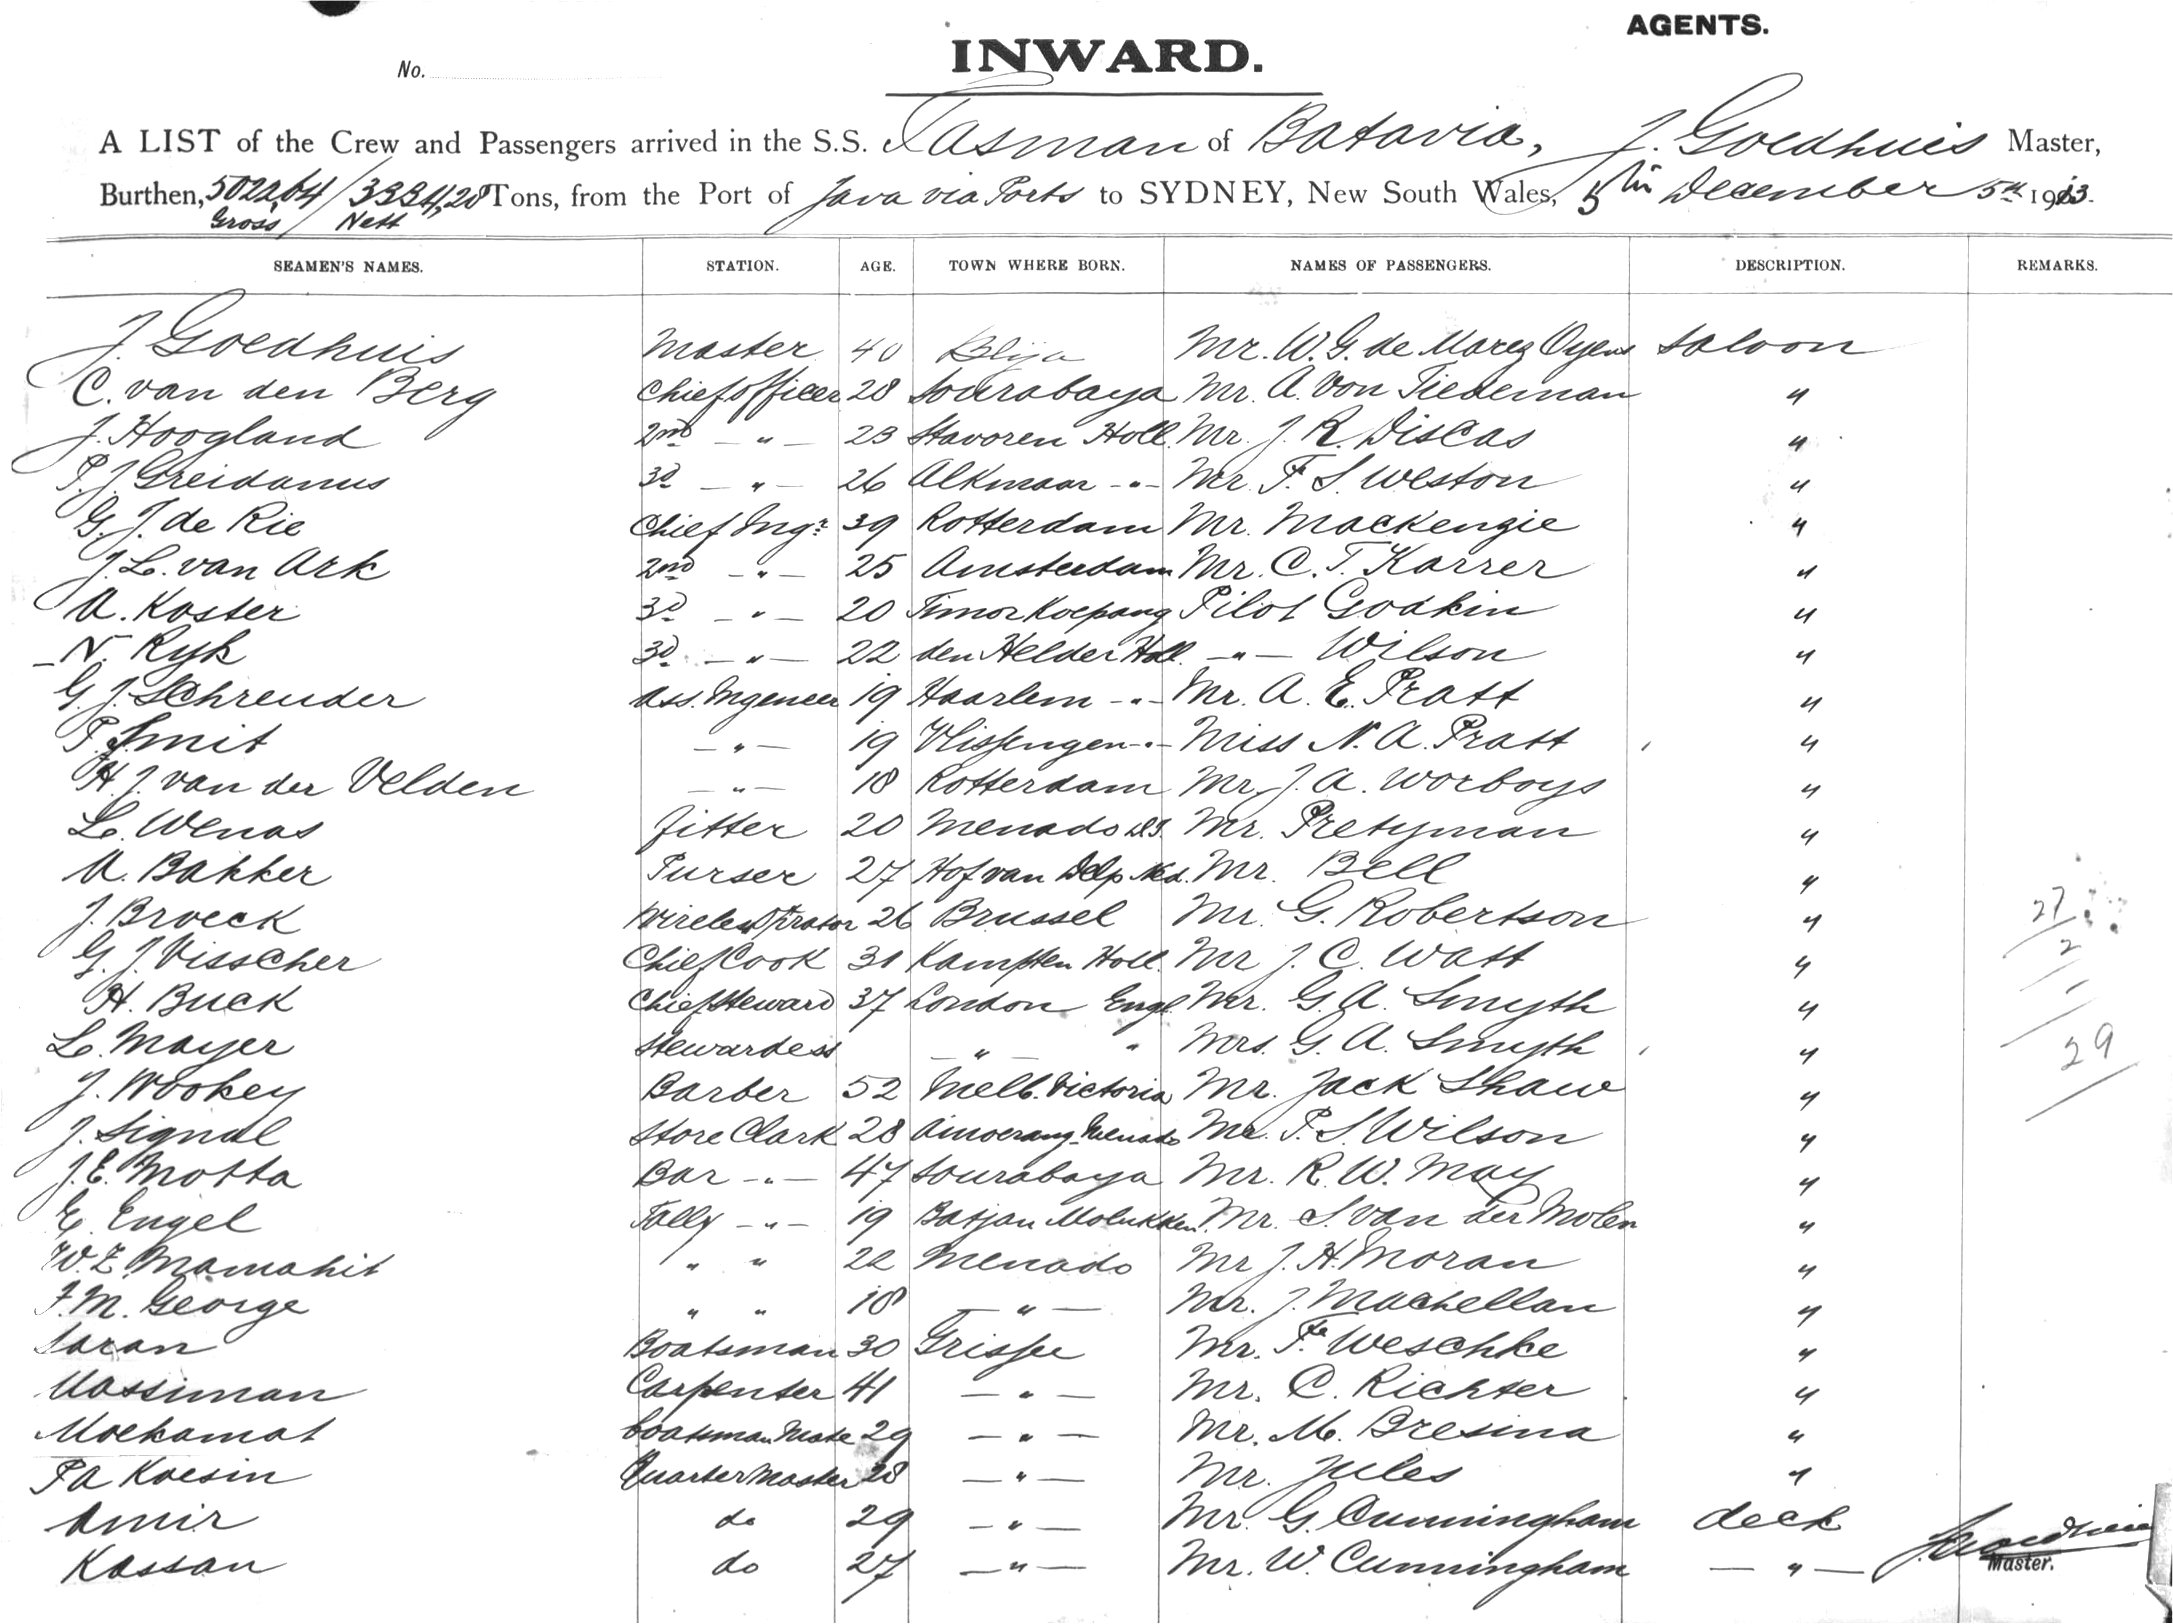 AGENTS.
No.
INWARD.
A LIST of the Crew and Passengers arrived in the S.S. Tasman of Batavia, J. Goedhuis Master,
Burthen, 5022,64 / 3334,28 Tons, from the Port of Java via Ports to SYDNEY, New South Wales, December 5th 1913.
Gross / Nett
SEAMEN'S NAMES. STATION. AGE. TOWN WHERE BORN. NAMES OF PASSENGERS. DESCRIPTION. REMARKS.
J. Goedhuis Master 40 Mr. W. G. de Marez Oyens Saloon
C. van den Berg Chief officer 28 Sourabaya Mr. A. von Tiedeman "
J. Hoogland 2nd — " — 23 Stavoren Holl. Mr. J. R. Discas "
P. J. Greidanus 3d — " — 26 Alkmaar — " — Mr. F. S. Weston "
G. J. de Rie Chief Ingr 39 Rotterdam Mr. Mackenzie "
J. L. van Ark 2nd — " — 25 Amsterdam Mr. C. T. Karrer "
A. Koster 3d — " — 20 Timor Koepang Pilot Godkin "
N. Ryk 3d — " — 22 den Helder Holl. — " — Wilson "
G. J. Schreuder Ass. Ingeneer 19 Haarlem — " — Mr. A. E. Pratt "
P. Smit — " — 19 Vlissengen — " — Miss N. A. Pratt "
H. J. van der Velden — " — 18 Rotterdam Mr. J. A. Worboys "
L. Wenas Fitter 20 Menado Mr. Pretyman "
A. Bakker Purser 27 Hof van Mr. Bell "
J. Broeck Wireless 26 Brussel Mr. G. Robertson "
G. J. Visscher Chief Cook 31 Kampten Holl. Mr J. C. Watt "
H. Buck Chief Steward 37 London Engl. Mr. G. A. Smyth "
L. Mayer Stewardess — " — " Mrs. G. A. Smyth "
J. Wookey Barber 52 Melb. Victoria Mr. Jack Shaw "
J. Signal Store Clark 28 Amoerang Menado Mr. P. S. Wilson "
J. E. Motta Bar — " — 47 Sourabaya Mr. R. W. May "
E. Engel Tally — " — 19 Batjan Molukken Mr. S. van der Molen "
W. Z. Mamahit " " 22 Menado Mr J. H. Moran "
F. M. George " " 18 — " — Mr. J. Machellan "
Saran Boatsman 30 Grissee Mr. Weschke "
Massiman Carpenter 41 — " — Mr. C. Richter "
Moekamat boatsman Mate 29 — " — Mr. M. Bresina "
Pa Koesin Quarter Master 28 — " — Mr. Jules "
Amir do 29 — " — Mr. G. Cunningham deck
Kassan do 27 — " — Mr. W. Cunningham — " —
27
2
29
Master.